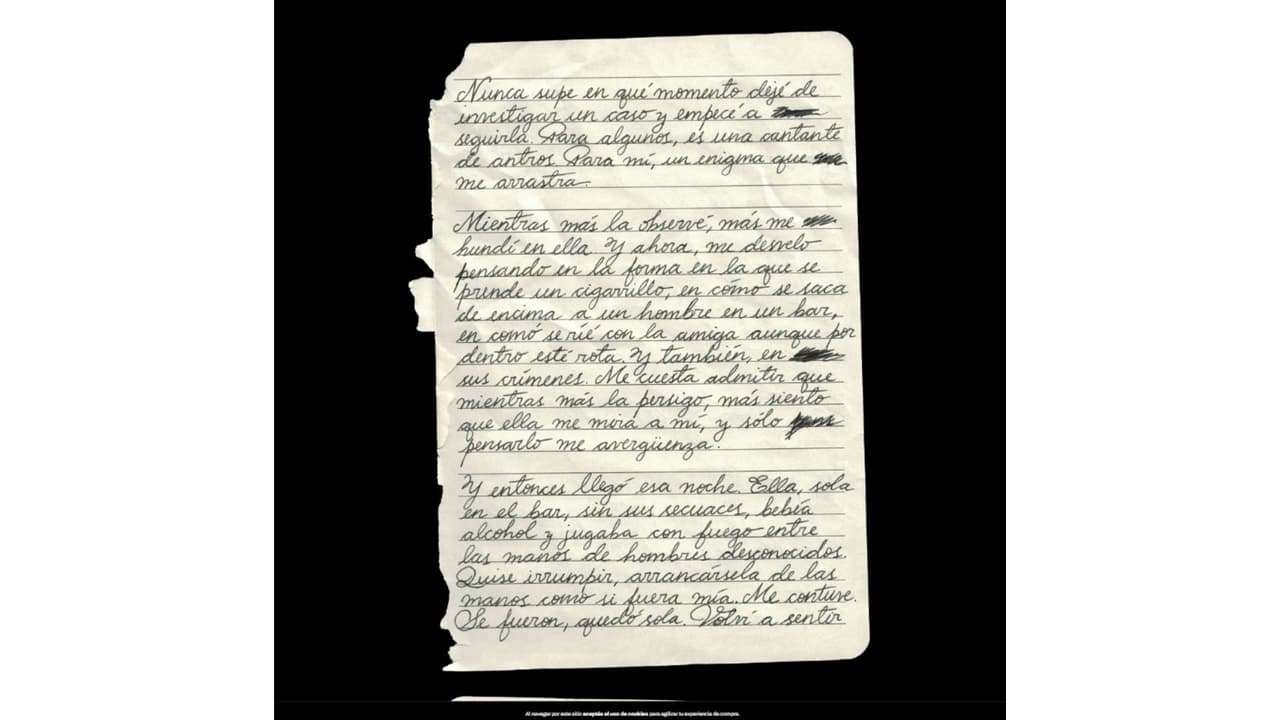 Nunca supe en qué momento dejé de
investigar un caso y empecé a
seguirla. Para algunos, es una cantante
de antros. Para mí, un enigma que
me arrastra.
Mientras más la observé, más me
hundí en ella. Y ahora, me desvelo
pensando en la forma en la que se
prende un cigarrillo, en cómo se saca
de encima a un hombre en un bar,
en comó se ríe con la amiga aunque por
dentro esté rota. Y también, en
sus crímenes. Me cuesta admitir que
mientras más la persigo, más siento
que ella me mira a mí, y sólo
pensarlo me avergüenza.
Y entonces llegó esa noche. Ella, sola
en el bar, sin sus secuaces, bebía
alcohol y jugaba con fuego entre
las manos de hombres desconocidos.
Quise irrumpir, arrancársela de las
manos como si fuera mía. Me contuve.
Se fueron, quedó sola. Volví a sentir
Al navegar por este sitio aceptás el uso de cookies para agilizar tu experiencia de compra.